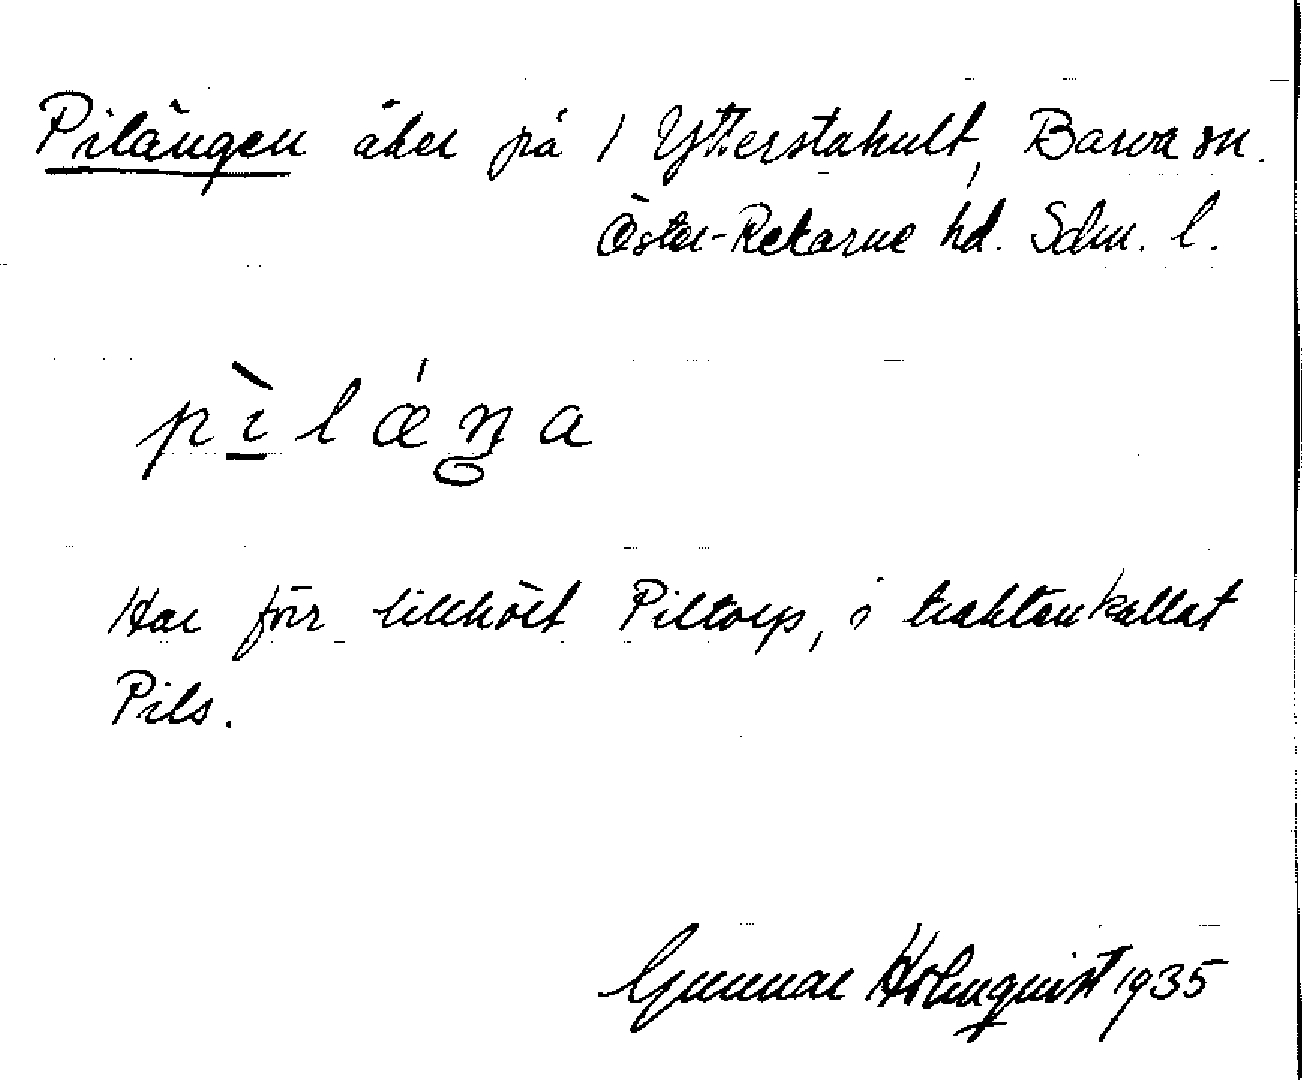 Pilängen åker på 1 Ytterstahult, Barva sn.
Öster-Rekarne hd. Sdm. l.
pìlǽŋa
Har förr tillhört Piltorp, i trakten kallat
Pils.
Gunnar Holmquist 1935